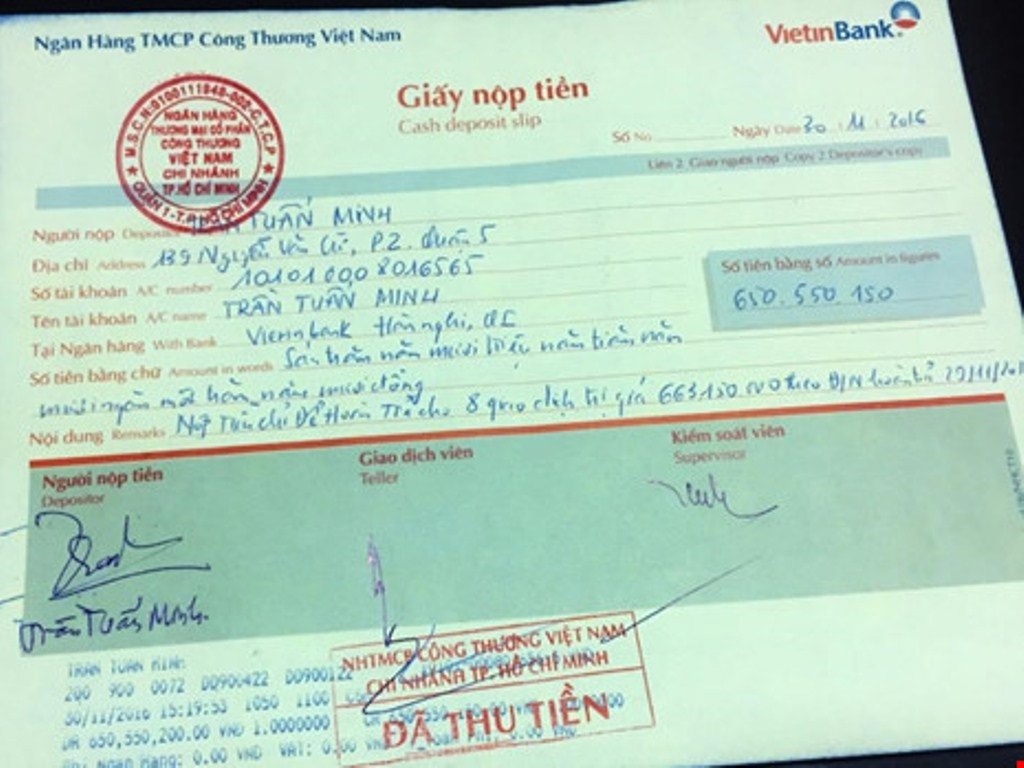 Ngân Hàng TMCP Công Thương Việt Nam
VietinBank
M.S.C.N:0100111948-002-C.T.C.P
NGÂN HÀNG
THƯƠNG MẠI CỔ PHẦN
CÔNG THƯƠNG
VIỆT NAM
CHI NHÁNH
TP.HỒ CHÍ MINH
QUẬN 1-T.P HỒ CHÍ MINH
Giấy nộp tiền
Cash deposit slip
Số No. Ngày Date 30 . 11 . 2016
Liên 2: Giao người nộp Copy 2 Depositor's copy
Người nộp Depositor TRẦN TUẤN MINH
Địa chỉ Address 139 Nguyễn Văn Cừ, P2. Quận 5
Số tài khoản A/C number 10101 000 8016565
Tên tài khoản A/C name TRẦN TUẤN MINH
Số tiền bằng số Amount in figures
650.550 150
Tại Ngân hàng With Bank Vietinbank Hàm nghi, Q1
Số tiền bằng chữ Amount in words Sáu trăm năm mươi triệu năm trăm năm
mươi ngàn một trăm năm mươi đồng
Nội dung Remarks Nộp 8 trị giá 663150 000 theo 29/11/
Người nộp tiền
Depositor
Giao dịch viên
Teller
Kiểm soát viên
Supervisor
Trần Tuấn Minh
TRAN TUAN MINH
200 900 0072 D0900422 D0900122
30/11/2016 15:19:53 1050 1100
DR 650,550,200.00 VND 1.0000000
Phi Ngan Hang: 0.00 VND VAT: 0.00 VND 0.00 VND
NHTMCP CÔNG THƯƠNG VIỆT NAM
CHI NHÁNH TP. HỒ CHÍ MINH
ĐÃ THU TIỀN